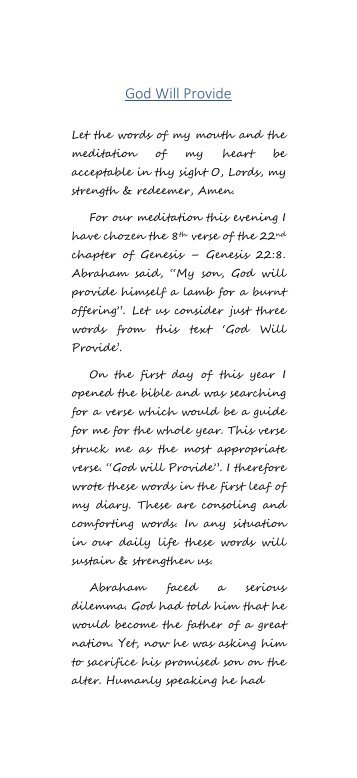 God Will Provide
Let the words of my mouth and the
meditation of my heart be
acceptable in thy sight O, Lords, my
strength & redeemer, Amen.
For our meditation this evening I
have chozen the 8th verse of the 22nd
chapter of Genesis – Genesis 22:8.
Abraham said, “My son, God will
provide himself a lamb for a burnt
offering”. Let us consider just three
words from this text ‘God Will
Provide’.
On the first day of this year I
opened the bible and was searching
for a verse which would be a guide
for me for the whole year. This verse
struck me as the most appropriate
verse. “God will Provide”. I therefore
wrote these words in the first leaf of
my diary. These are consoling and
comforting words. In any situation
in our daily life these words will
sustain & strengthen us.
Abraham faced a serious
dilemma. God had told him that he
would become the father of a great
nation. Yet, now he was asking him
to sacrifice his promised son on the
alter. Humanly speaking he had